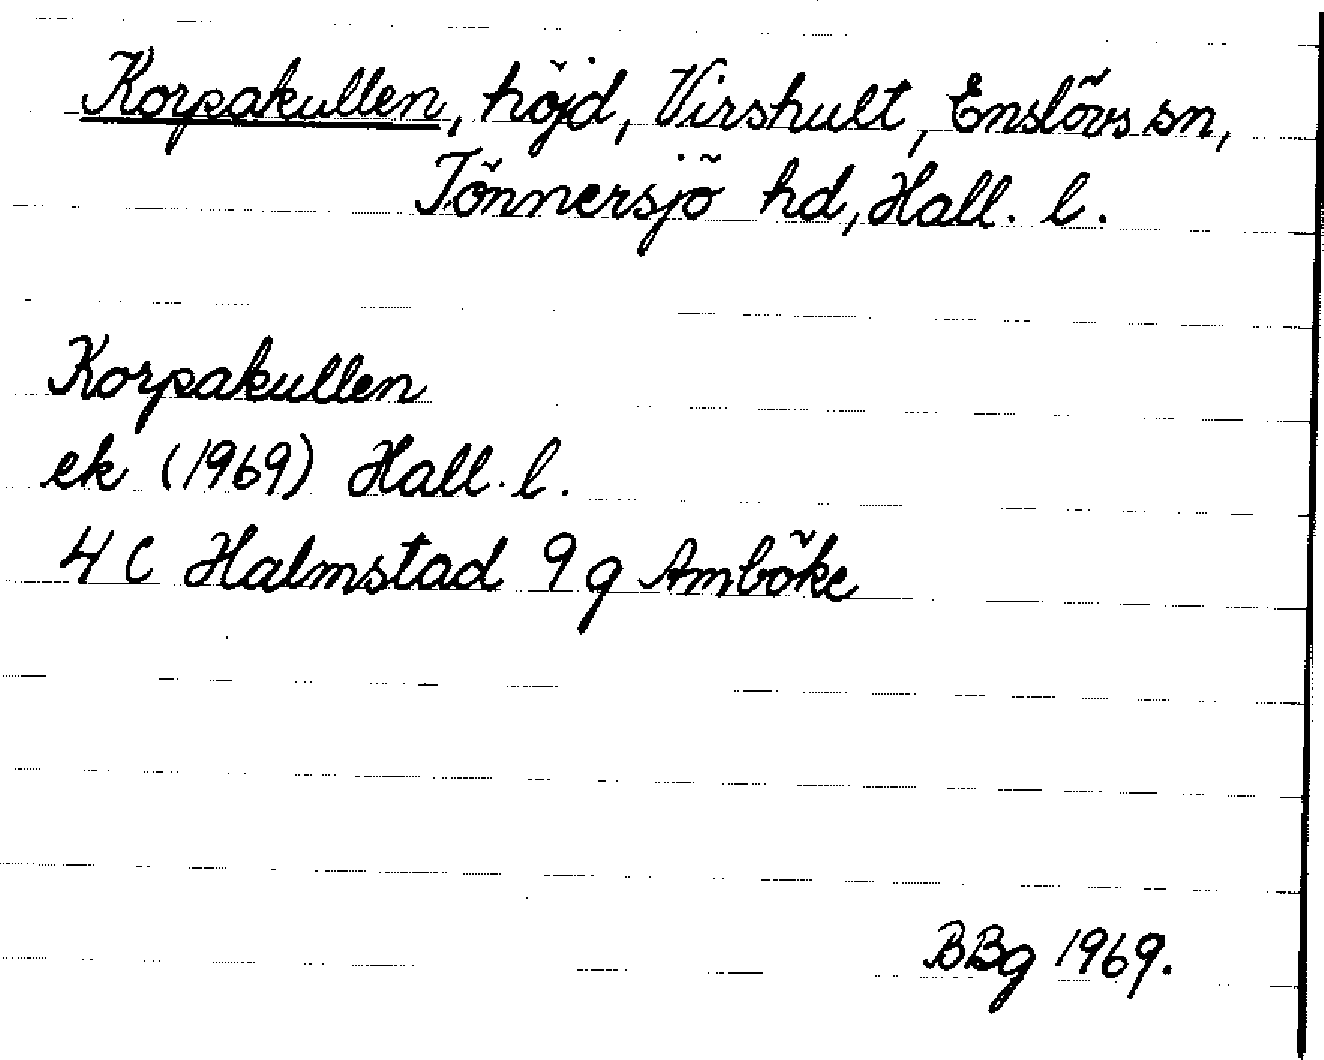 Korpakullen, höjd, Virshult, Enslövs sn,
Tönnersjö hd, Hall. l.
Korpakullen
ek (1969) Hall. l.
4 C Halmstad 9 g Amböke
BBg 1969.